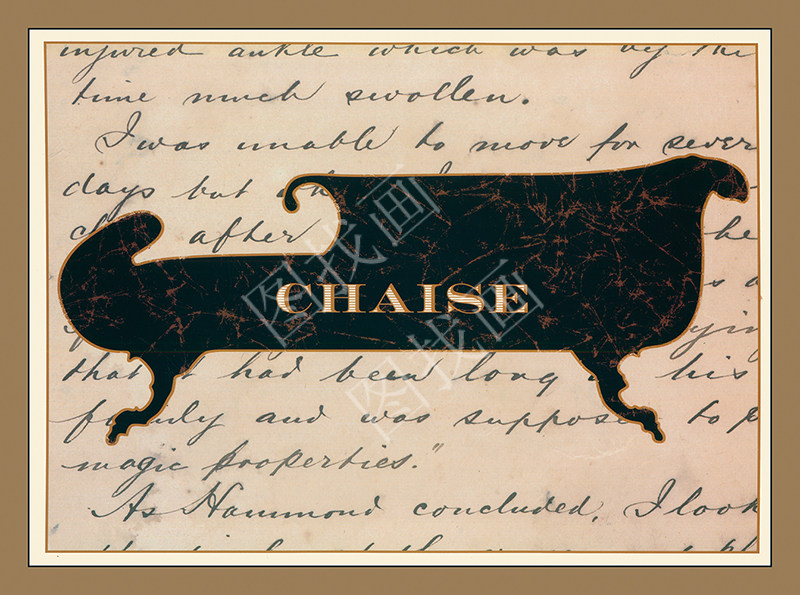 injured ankle which was by the
time much swollen.
I was unable to move for sever
days but
after he
CHAISE
that it had been long his
family and was suppose to p
magic properties."
As Hammond concluded, I look
图找画
图找画
图找画